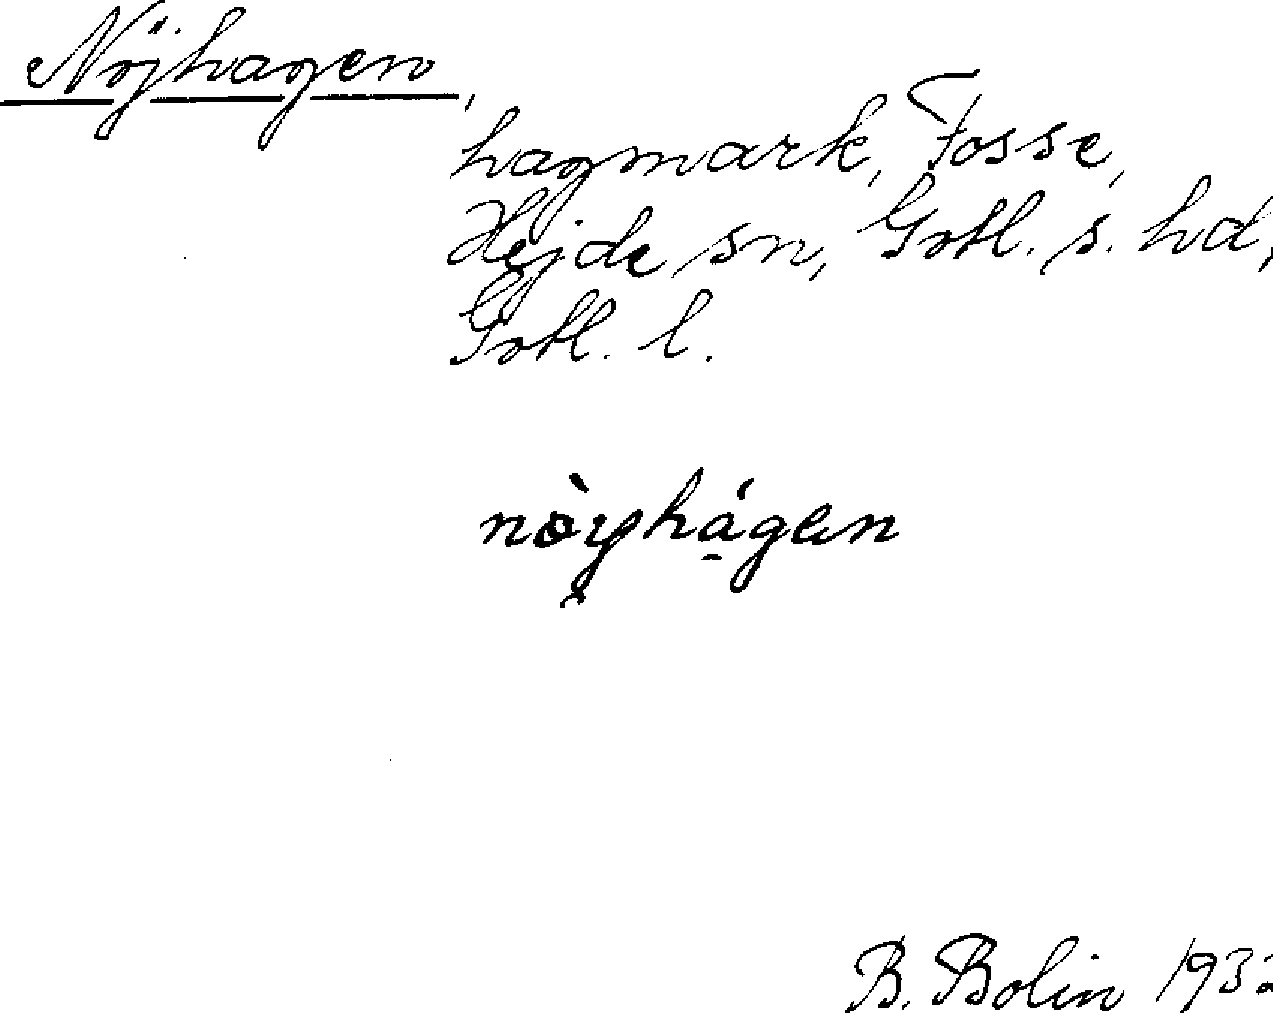 Nöjhagen,
hagmark, Fosse,
Hejde sn, Gotl. s. hd,
Gotl. l.
nòyhágen
B. Bolin